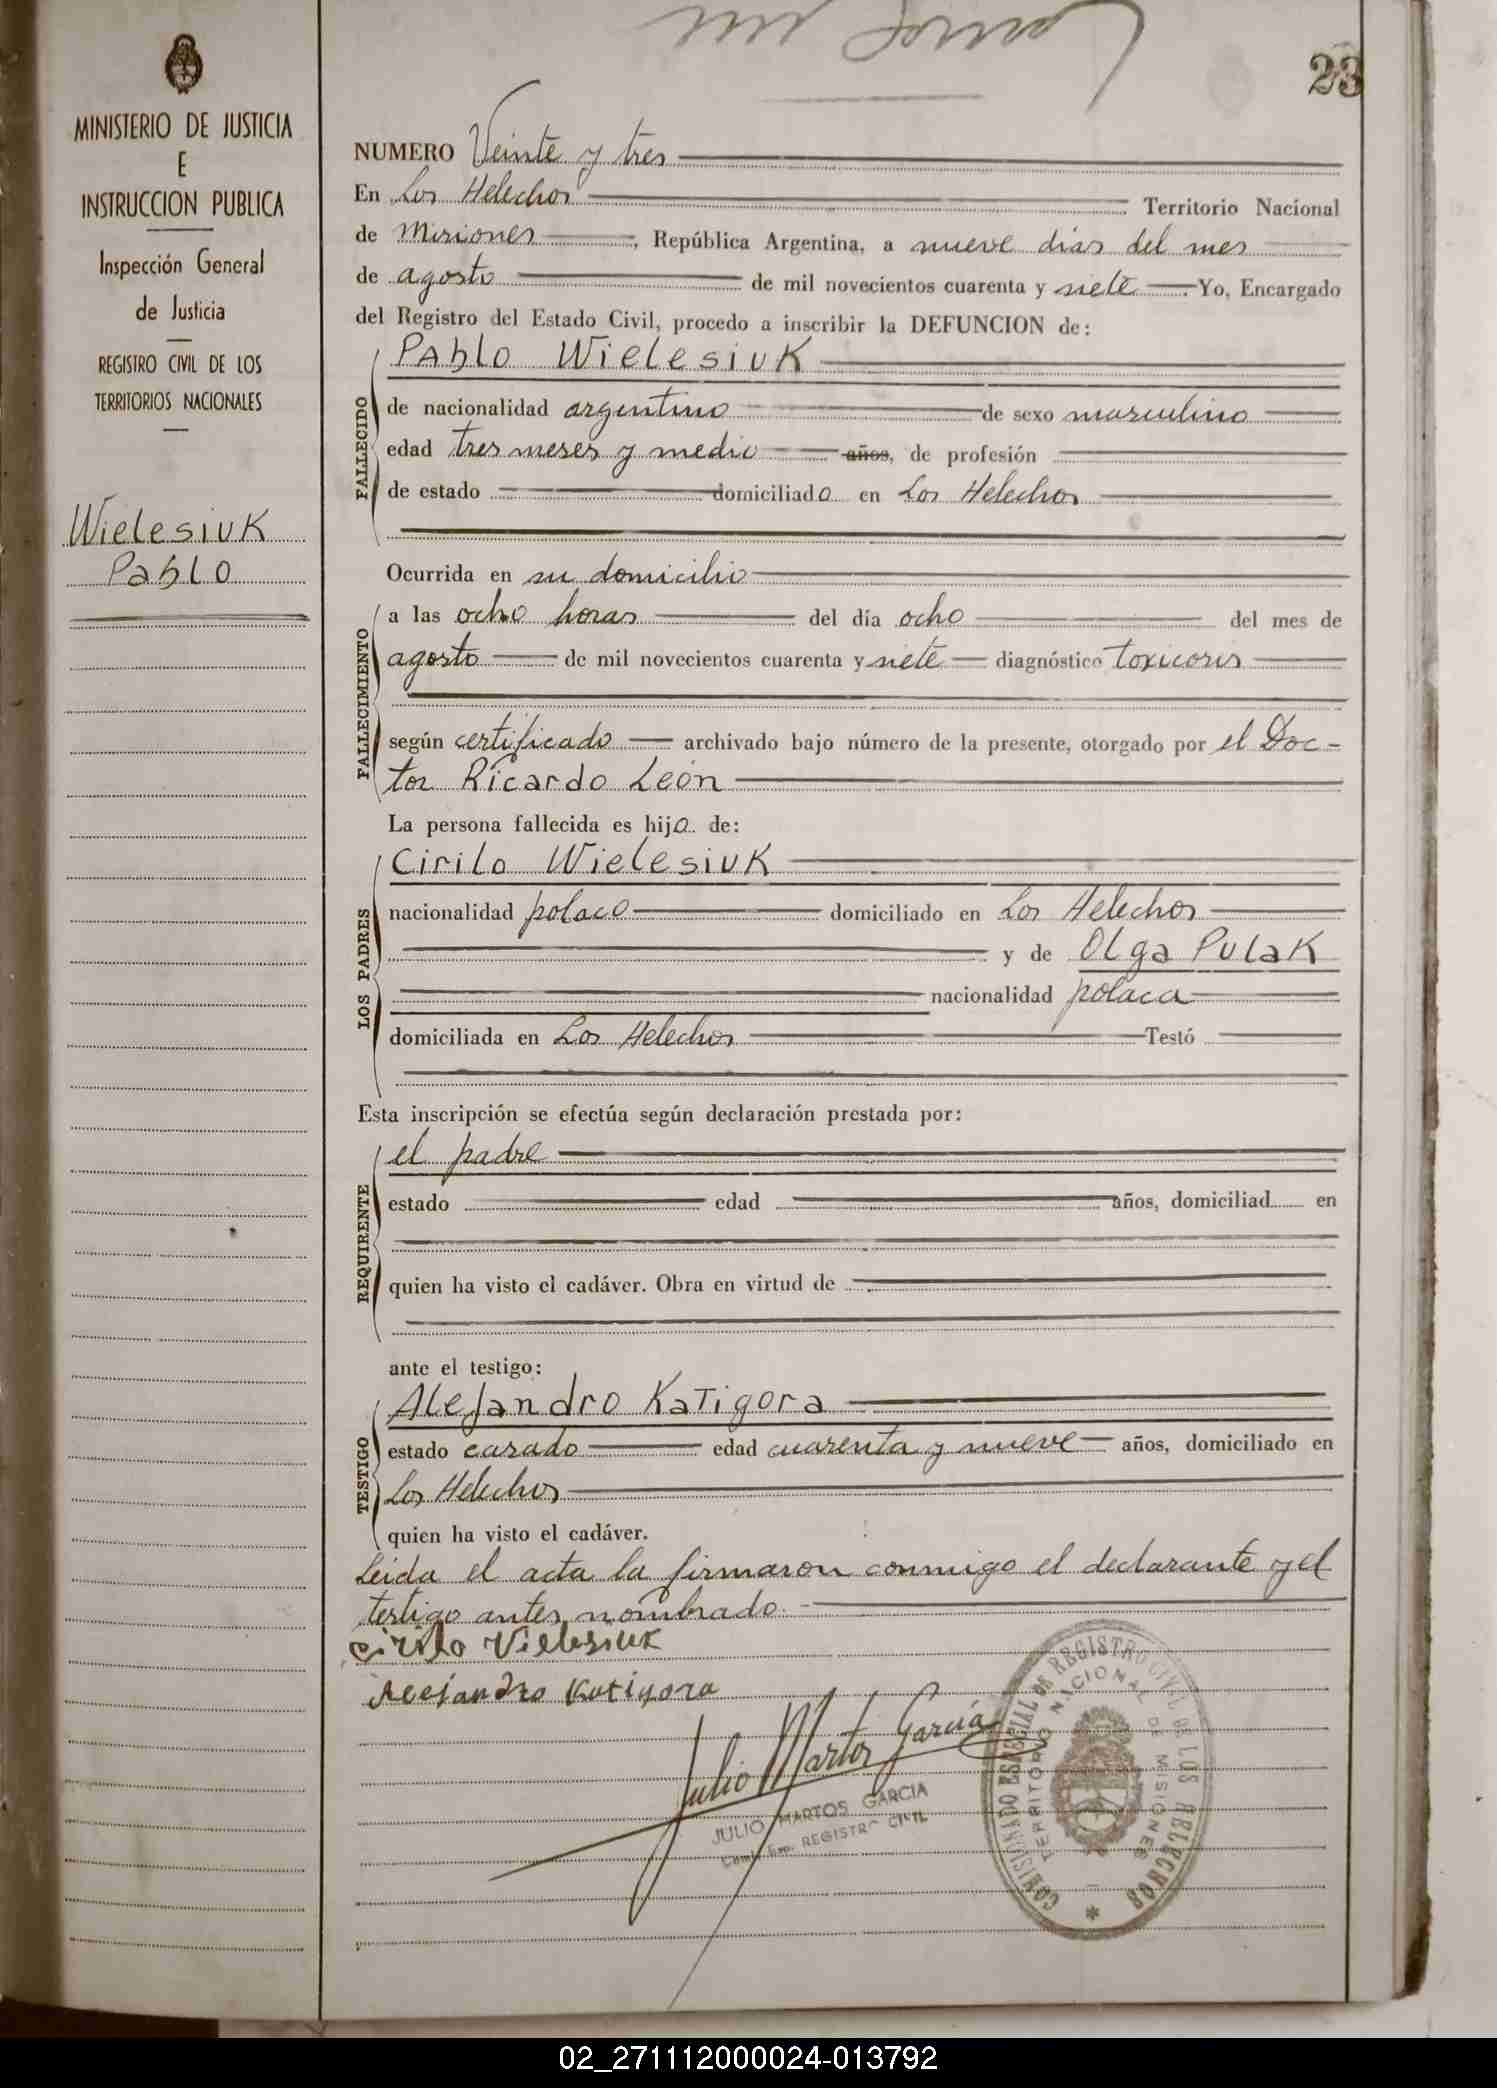 23
MINISTERIO DE JUSTICIA
E
INSTRUCCION PUBLICA
Inspección General
de Justicia
REGISTRO CIVIL DE LOS
TERRITORIOS NACIONALES
Wielesiuk
Pablo
NUMERO Veinte y tres
En Los Helechos Territorio Nacional
de Misiones, República Argentina, a nueve días del mes
de agosto de mil novecientos cuarenta y siete. Yo, Encargado
del Registro del Estado Civil, procedo a inscribir la DEFUNCION de:
Pablo Wielesiuk
FALLECIDO
de nacionalidad argentino de sexo masculino
edad tres meses y medio años, de profesión
de estado domiciliado en Los Helechos
Ocurrida en su domicilio
FALLECIMIENTO
a las ocho horas del día ocho del mes de
agosto de mil novecientos cuarenta y siete diagnóstico toxicosis
según certificado archivado bajo número de la presente, otorgado por el Doc-
tor Ricardo León
La persona fallecida es hijo de:
LOS PADRES
Cirilo Wielesiuk
nacionalidad polaco domiciliado en Los Helechos
y de Olga Pulak
nacionalidad polaca
domiciliada en Los Helechos Testó
Esta inscripción se efectúa según declaración prestada por:
REQUIRENTE
el padre
estado edad años, domiciliad en
quien ha visto el cadáver. Obra en virtud de
ante el testigo:
TESTIGO
Alejandro Katigora
estado casado edad cuarenta y nueve años, domiciliado en
Los Helechos
quien ha visto el cadáver.
Leida el acta la firmaron conmigo el declarante y el
testigo antes nombrado.
Cirilo Vielesiuk
Alejandro Katigora
Julio Martos García
JULIO MARTOS GARCIA
Com. Esp. REGISTRO CIVIL
COMISIONADO ESPECIAL DE REGISTRO CIVIL DE LOS HELECHOS
TERRITORIO NACIONAL DE MISIONES
02_271112000024-013792